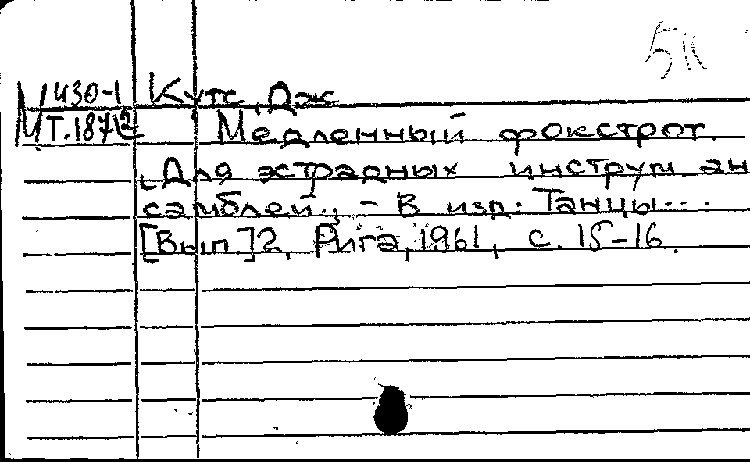 М 430-1 Кутс, Дж
МТ.187/2 Медленный фокстрот.
[Для эстрадных инструм. ан
самблей]. - В изд.: Танцы...
[Вып]2, Рига, 1961, с. 15-16.